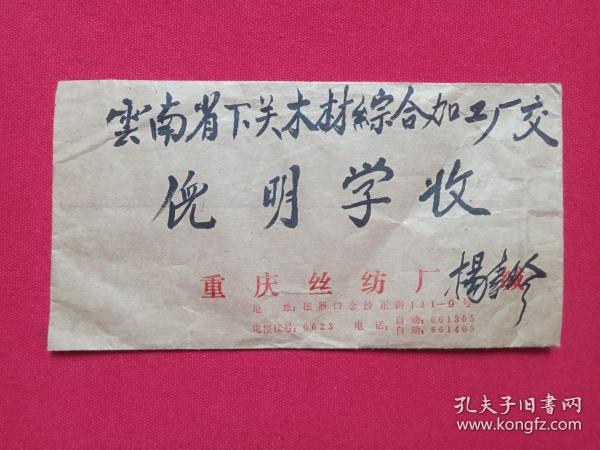 雲南省下关木材綜合加工厂交
倪明学收
重庆丝纺厂 楊
地 址:磁器口金沙正街131-9号
电报挂号:6623 电话:自动:661305
自动:661465
孔夫子旧书网
www.kongfz.com